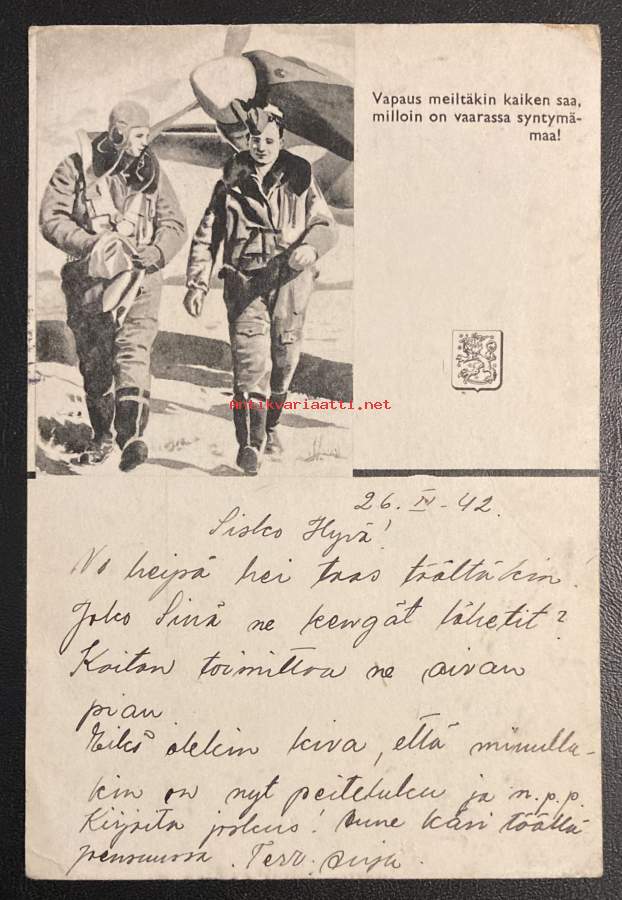 Vapaus meiltäkin kaiken saa,
milloin on vaarassa syntymä-
maa!
Antikvariaatti.net
26. IV -42.
Sisko Hyvä!
No heipä hei taas täältäkin!
Joko Sinä ne kengät lähetit?
Koitan toimittaa ne aivan
pian
Eikö olekin kiva, että minulla-
kin on nyt peiteluku ja n.p.p.
Kirjoita joskus! käsi täällä
Terv.